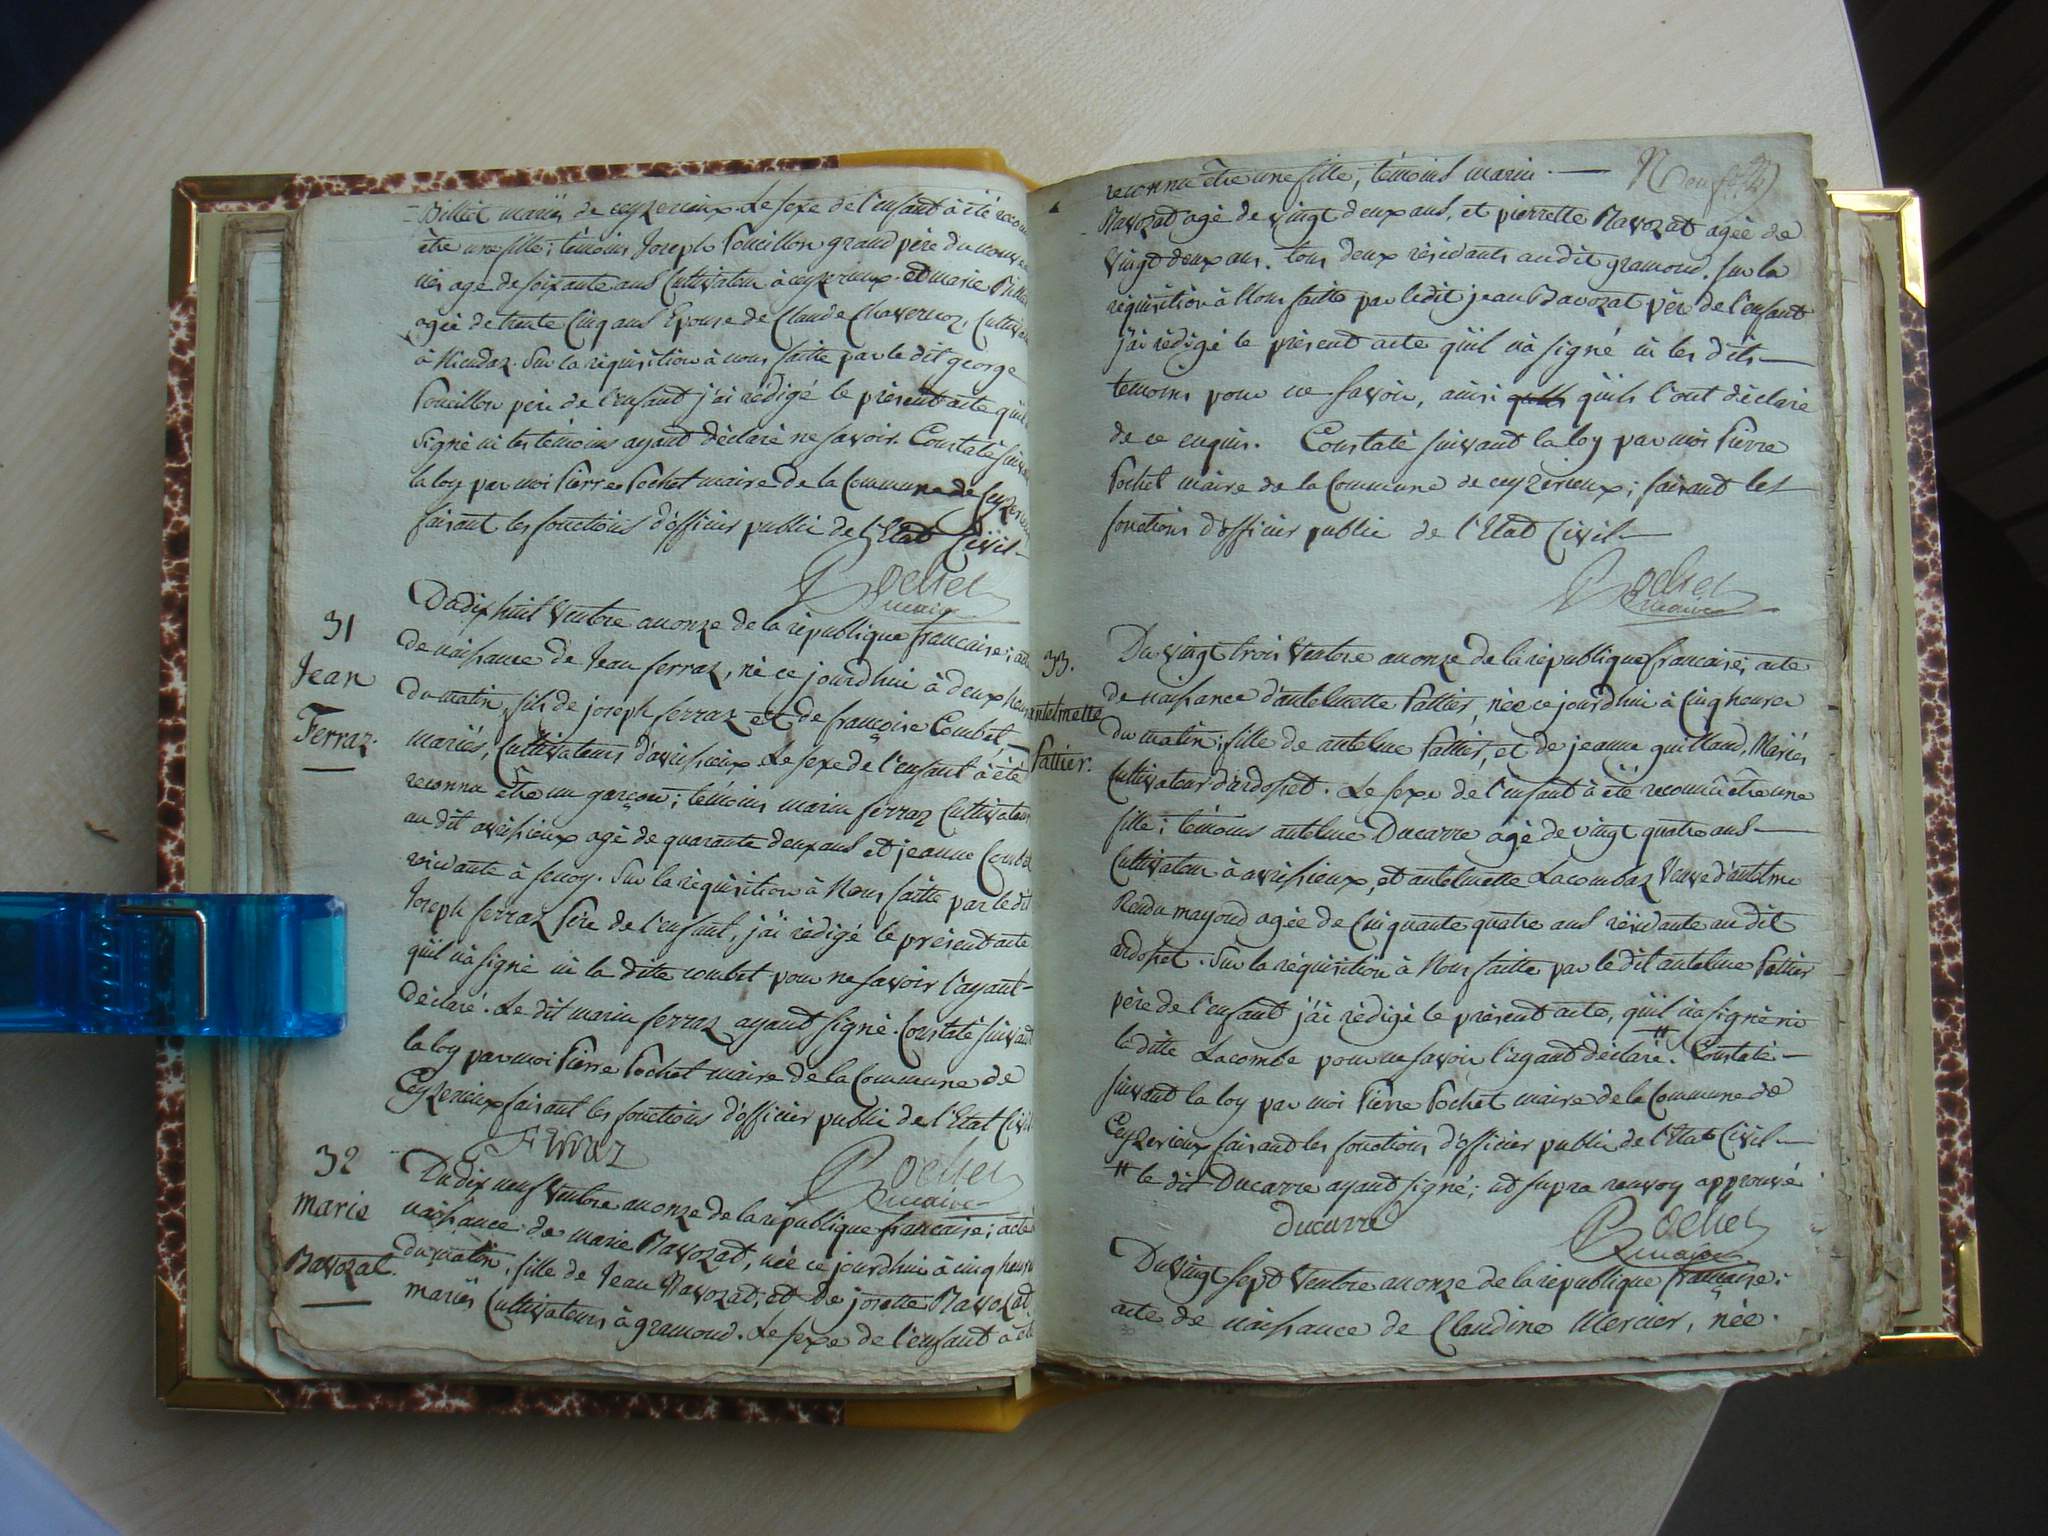 Billiet mariés de ceyzerieux. Le sexe de l'enfant à été recon
être une fille; témoins Joseph Poncillon grand père du nouve
né agé de soixante ans Cultivateur à ceyzerieux. et marie Billi
agée de trente Cinq ans Epouse de Claude Chavernoz, Cultiv
à . Sur la réquisition à nous faitte par le dit george
Poncillon père de l'enfant j'ai rédigé le présent acte qu'il
signé ni les témoins ayant déclaré ne savoir. Constaté suiv
la loy par moi Pierre Pochet maire de la Commune de Ceyzerieux
faisant les fonctions d'officier public de l'Etat Civil
Pochet
maire
31
Jean
Ferraz.
Du dix huit Ventose an onze de la république francaise; acte
de naissance de Jean ferraz, né ce jourd'hui à deux heures
du matin, fils de joseph ferraz et de françoise Combet
mariés, Cultivateurs d'avrissieux. Le sexe de l'enfant à été
reconnu Être un garçon; témoins marin ferraz Cultivateur
au dit avrissieux agé de quarante deux ans et jeanne Combet
résidante à . Sur la réquisition à Nous faitte par le dit
Joseph ferraz Père de l'enfant, j'ai rédigé le présent acte
qu'il n'a signé ni la ditte combet pour ne savoir l'ayant
déclaré. Le dit marin ferraz ayant signé. Constaté suivant
la loy par moi Pierre Pochet maire de la Commune de
Ceyzerieux faisant les fonctions d'officier public de l'Etat Civil
Ferraz
Pochet
maire
32
marie
Ravozat.
Du dix neuf Ventose an onze de la république francaise; acte
naissance de marie Ravozat, née ce jourd'hui à cinq heures
du matin, fille de Jean Ravozat, et de josette Ravozat
mariés Cultivateurs à gramond. Le sexe de l'enfant a été
reconnu être une fille; témoins marin
Neuf
Ravozat agé de vingt deux ans, et pierrette Ravozat agée de
vingt deux ans. tous deux résidants audit gramond. sur la
réquisition à Nous faitte par ledit jean Ravozat père de l'enfant
j'ai rédigé le présent acte qu'il n'a signé ni les dits
temoins pour ne savoir, ainsi quils qu'ils l'ont déclaré
de ce enquis. Constaté suivant la loy par moi Pierre
Pochet maire de la Commune de ceyzerieux; faisant les
fonctions d'officier public de l'Etat Civil
Pochet
maire
33.
antelmette
Pattier.
Du vingt trois Ventose an onze de la république francaise, acte
de naissance d'antelmette Pattier, née ce jourd'hui à Cinq heures
du matin; fille de antelme Pattier, et de jeanne guilland, Mariés
Cultivateurs d'ardosset. Le sexe de l'enfant à été reconnu être une
fille; témoins antelme Ducarre agé de vingt quatre ans
Cultivateur à avrissieux, et antelmette Lacombaz Veuve d'antelme
Rendu mayoud agée de Cinquante quatre ans résidante au dit
ardosset. Sur la réquisition à Nous faitte par le dit antelme Pattier
père de l'enfant j'ai rédigé le présent acte, qu'il n'a signé ni
la ditte Lacombe pour ne savoir l'ayant déclaré. # Constaté
suivant la loy par moi Pierre Pochet maire de la Commune de
Ceyzerieux faisant les fonctions d'officier public de l'Etat Civil
# le dit Ducarre ayant signé; ut supra renvoy approuvé
ducarre
Pochet
maire
Du vingt sept Ventose an onze de la république française;
acte de naissance de Claudine Mercier, née